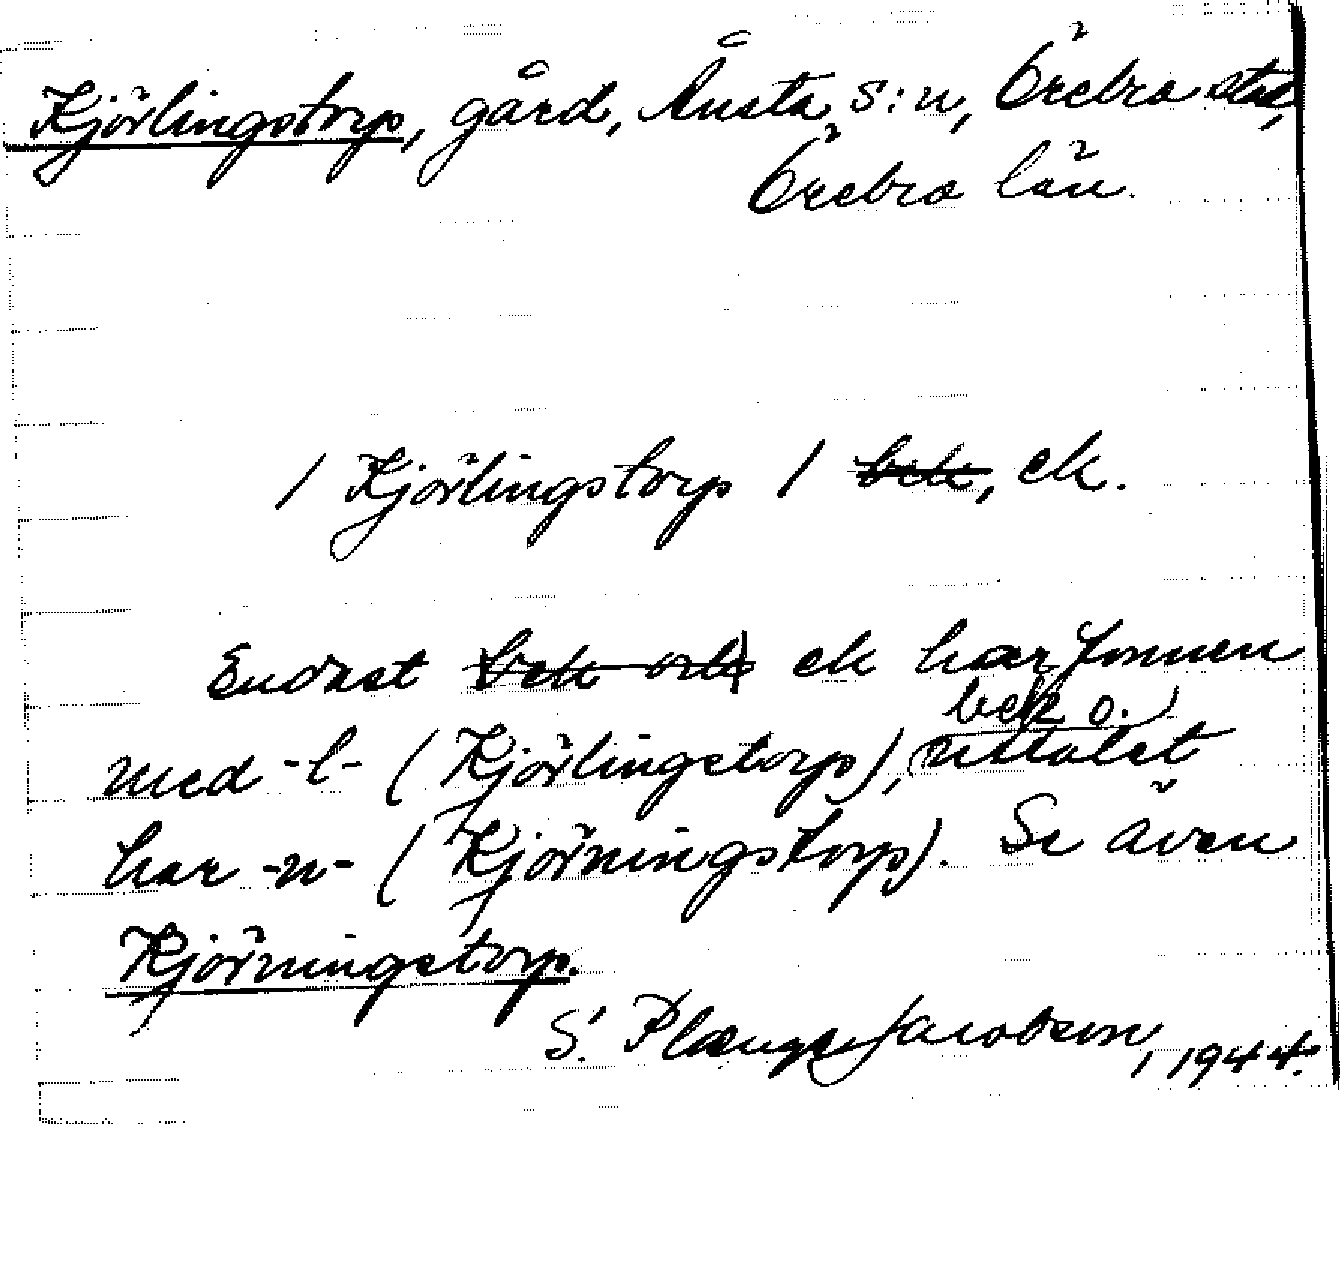 Kjörlingstorp, gård, Ånsta s:n, Örebro stad,
Örebro län.
/ Kjörlingstorp / bek, ek.
Endast bek och ek har formen
bek o.
med -l- (Kjörlingstorp), uttalet
har -n- (Kjörningstorp). Se även
Kjörningstorp.
S. Plænge Jacobson, 1944.